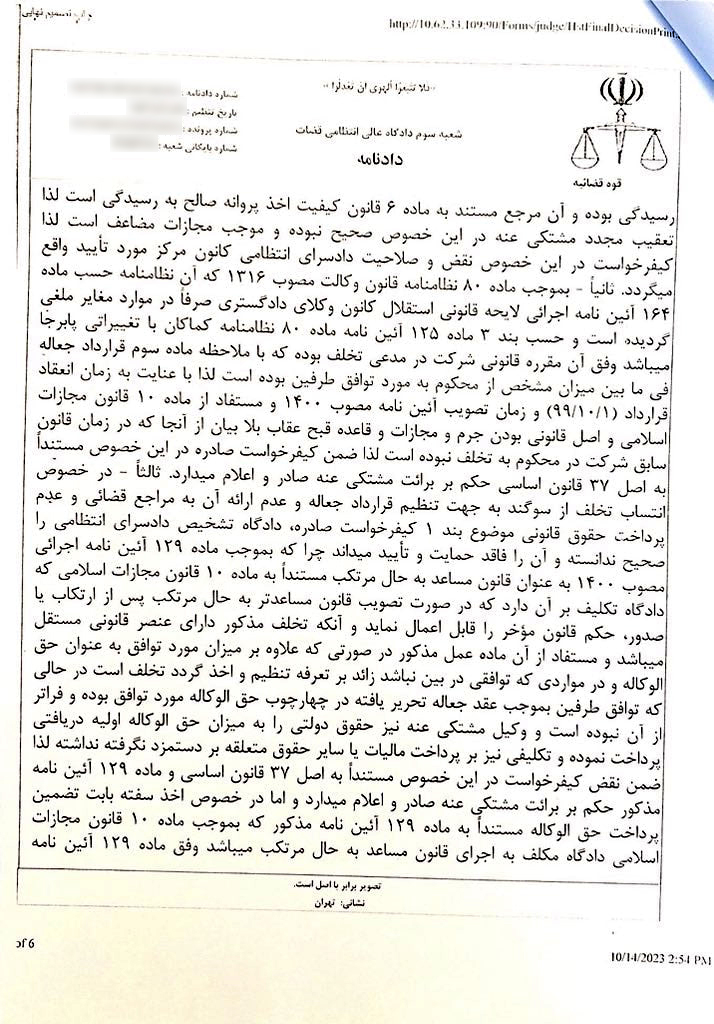 چاپ تصمیم نهایی
http://10.62.33.109:90/Forms/judge/HstFinalDecisionPrint.
شماره دادنامه :
«فلا تتبعوا الهوی ان تعدلوا»
تاریخ تنظیم :
شماره پرونده :
شعبه سوم دادگاه عالی انتظامی قضات
شماره بایگانی شعبه :
دادنامه
قوه قضائیه
رسیدگی بوده و آن مرجع مستند به ماده ۶ قانون کیفیت اخذ پروانه صالح به رسیدگی است لذا
تعقیب مجدد مشتکی عنه در این خصوص صحیح نبوده و موجب مجازات مضاعف است لذا
کیفرخواست در این خصوص نقض و صلاحیت دادسرای انتظامی کانون مرکز مورد تأیید واقع
میگردد. ثانیاً - بموجب ماده ۸۰ نظامنامه قانون وکالت مصوب ۱۳۱۶ که آن نظامنامه حسب ماده
۱۶۴ آئین نامه اجرائی لایحه قانونی استقلال کانون وکلای دادگستری صرفاً در موارد مغایر ملغی
گردیده است و حسب بند ۳ ماده ۱۲۵ آئین نامه ماده ۸۰ نظامنامه کماکان با تغییراتی پابرجا
میباشد وفق آن مقرره قانونی شرکت در مدعی تخلف بوده که با ملاحظه ماده سوم قرارداد جعاله
فی ما بین میزان مشخص از محکوم به مورد توافق طرفین بوده است لذا با عنایت به زمان انعقاد
قرارداد (۹۹/۱۰/۱) و زمان تصویب آئین نامه مصوب ۱۴۰۰ و مستفاد از ماده ۱۰ قانون مجازات
اسلامی و اصل قانونی بودن جرم و مجازات و قاعده قبح عقاب بلا بیان از آنجا که در زمان قانون
سابق شرکت در محکوم به تخلف نبوده است لذا ضمن کیفرخواست صادره در این خصوص مستنداً
به اصل ۳۷ قانون اساسی حکم بر برائت مشتکی عنه صادر و اعلام میدارد. ثالثاً - در خصوص
انتساب تخلف از سوگند به جهت تنظیم قرارداد جعاله و عدم ارائه آن به مراجع قضائی و عدم
پرداخت حقوق قانونی موضوع بند ۱ کیفرخواست صادره، دادگاه تشخیص دادسرای انتظامی را
صحیح ندانسته و آن را فاقد حمایت و تأیید میداند چرا که بموجب ماده ۱۲۹ آئین نامه اجرائی
مصوب ۱۴۰۰ به عنوان قانون مساعد به حال مرتکب مستنداً به ماده ۱۰ قانون مجازات اسلامی که
دادگاه تکلیف بر آن دارد که در صورت تصویب قانون مساعدتر به حال مرتکب پس از ارتکاب یا
صدور، حکم قانون مؤخر را قابل اعمال نماید و آنکه تخلف مذکور دارای عنصر قانونی مستقل
میباشد و مستفاد از آن ماده عمل مذکور در صورتی که علاوه بر میزان مورد توافق به عنوان حق
الوکاله و در مواردی که توافقی در بین نباشد زائد بر تعرفه تنظیم و اخذ گردد تخلف است در حالی
که توافق طرفین بموجب عقد جعاله تحریر یافته در چهارچوب حق الوکاله مورد توافق بوده و فراتر
از آن نبوده است و وکیل مشتکی عنه نیز حقوق دولتی را به میزان حق الوکاله اولیه دریافتی
پرداخت نموده و تکلیفی نیز بر پرداخت مالیات یا سایر حقوق متعلقه بر دستمزد نگرفته نداشته لذا
ضمن نقض کیفرخواست در این خصوص مستنداً به اصل ۳۷ قانون اساسی و ماده ۱۲۹ آئین نامه
مذکور حکم بر برائت مشتکی عنه صادر و اعلام میدارد و اما در خصوص اخذ سفته بابت تضمین
پرداخت حق الوکاله مستنداً به ماده ۱۲۹ آئین نامه مذکور که بموجب ماده ۱۰ قانون مجازات
اسلامی دادگاه مکلف به اجرای قانون مساعد به حال مرتکب میباشد وفق ماده ۱۲۹ آئین نامه
تصویر برابر با اصل است.
نشانی: تهران
of 6
10/14/2023 2:54 PM